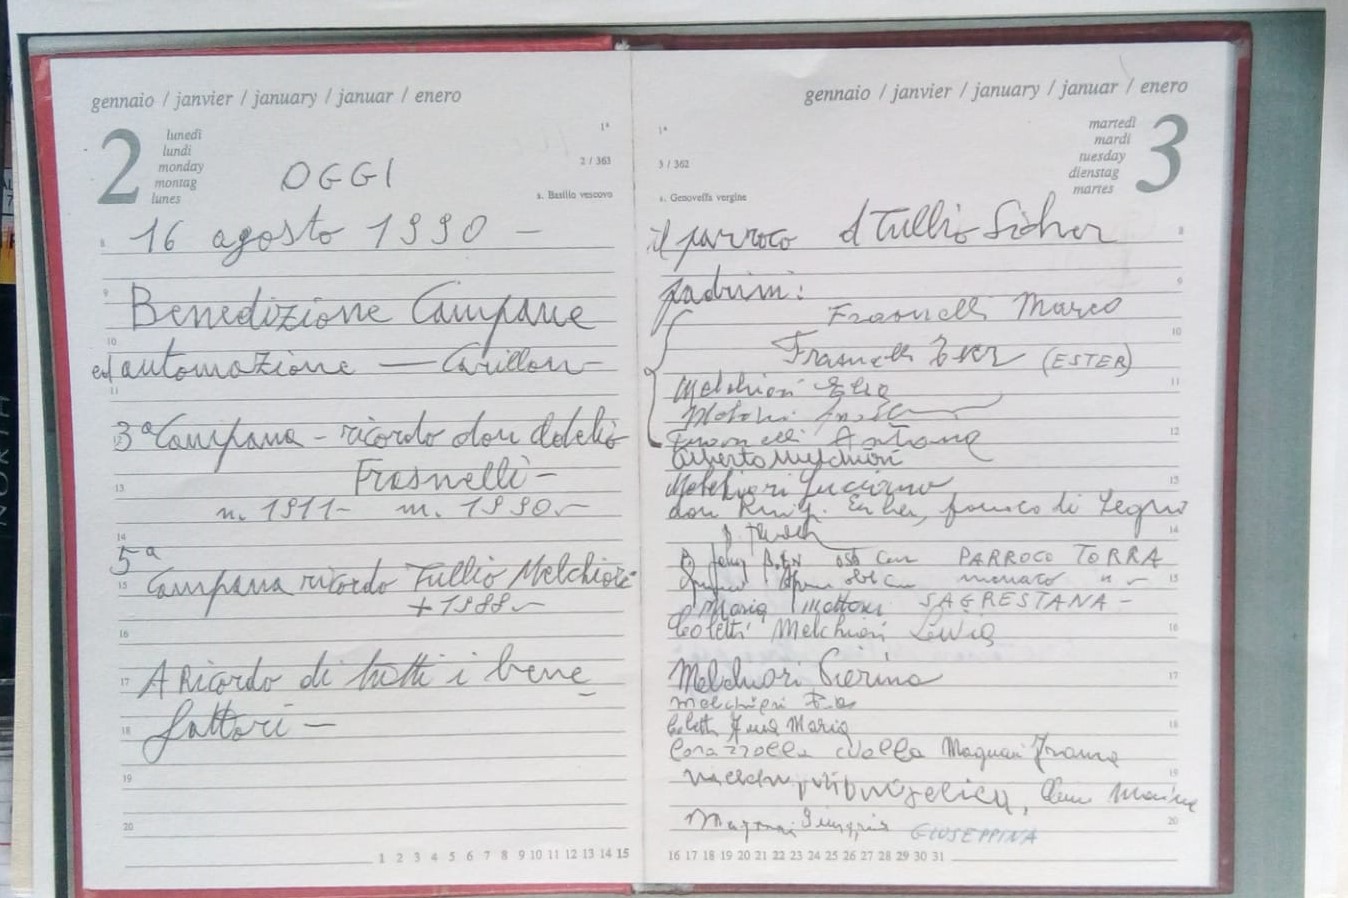 gennaio / janvier / january / januar / enero
2
lunedì
lundi
monday
montag
lunes
1ª
2 / 363
s. Basilio vescovo
OGGI
8 16 agosto 1990 -
9 Benedizione Campane
10 ed automazione — Carillon -
11
12 3ª Campana - ricordo don Adelio
Frasnelli -
13 n. 1911 - m. 1990 -
14 5ª
15 Campana ricordo Tullio Melchiori
+ 1988 -
16
17 A Ricordo di tutti i bene
18 fattori -
19
20
1 2 3 4 5 6 7 8 9 10 11 12 13 14 15
gennaio / janvier / january / januar / enero
martedì
mardi
tuesday
dienstag
martes
3
1ª
3 / 362
s. Genoveffa vergine
il parroco d Tullio 8
padrini: 9
Frasnelli Marco
10
Frasnelli Ester (ESTER)
Melchiori 11
12
Frasnelli
Alberto Melchiori
Melchiori Luciano 13
don parroco di Segno
14
PARROCO TORRA
15
Maria SAGRESTANA -
Coletti Melchiori Livia 16
Melchiori Pierina 17
Melchiori
Coletti Anna Maria 18
Corazzolla Magnani
19
Magnani GIUSEPPINA 20
16 17 18 19 20 21 22 23 24 25 26 27 28 29 30 31